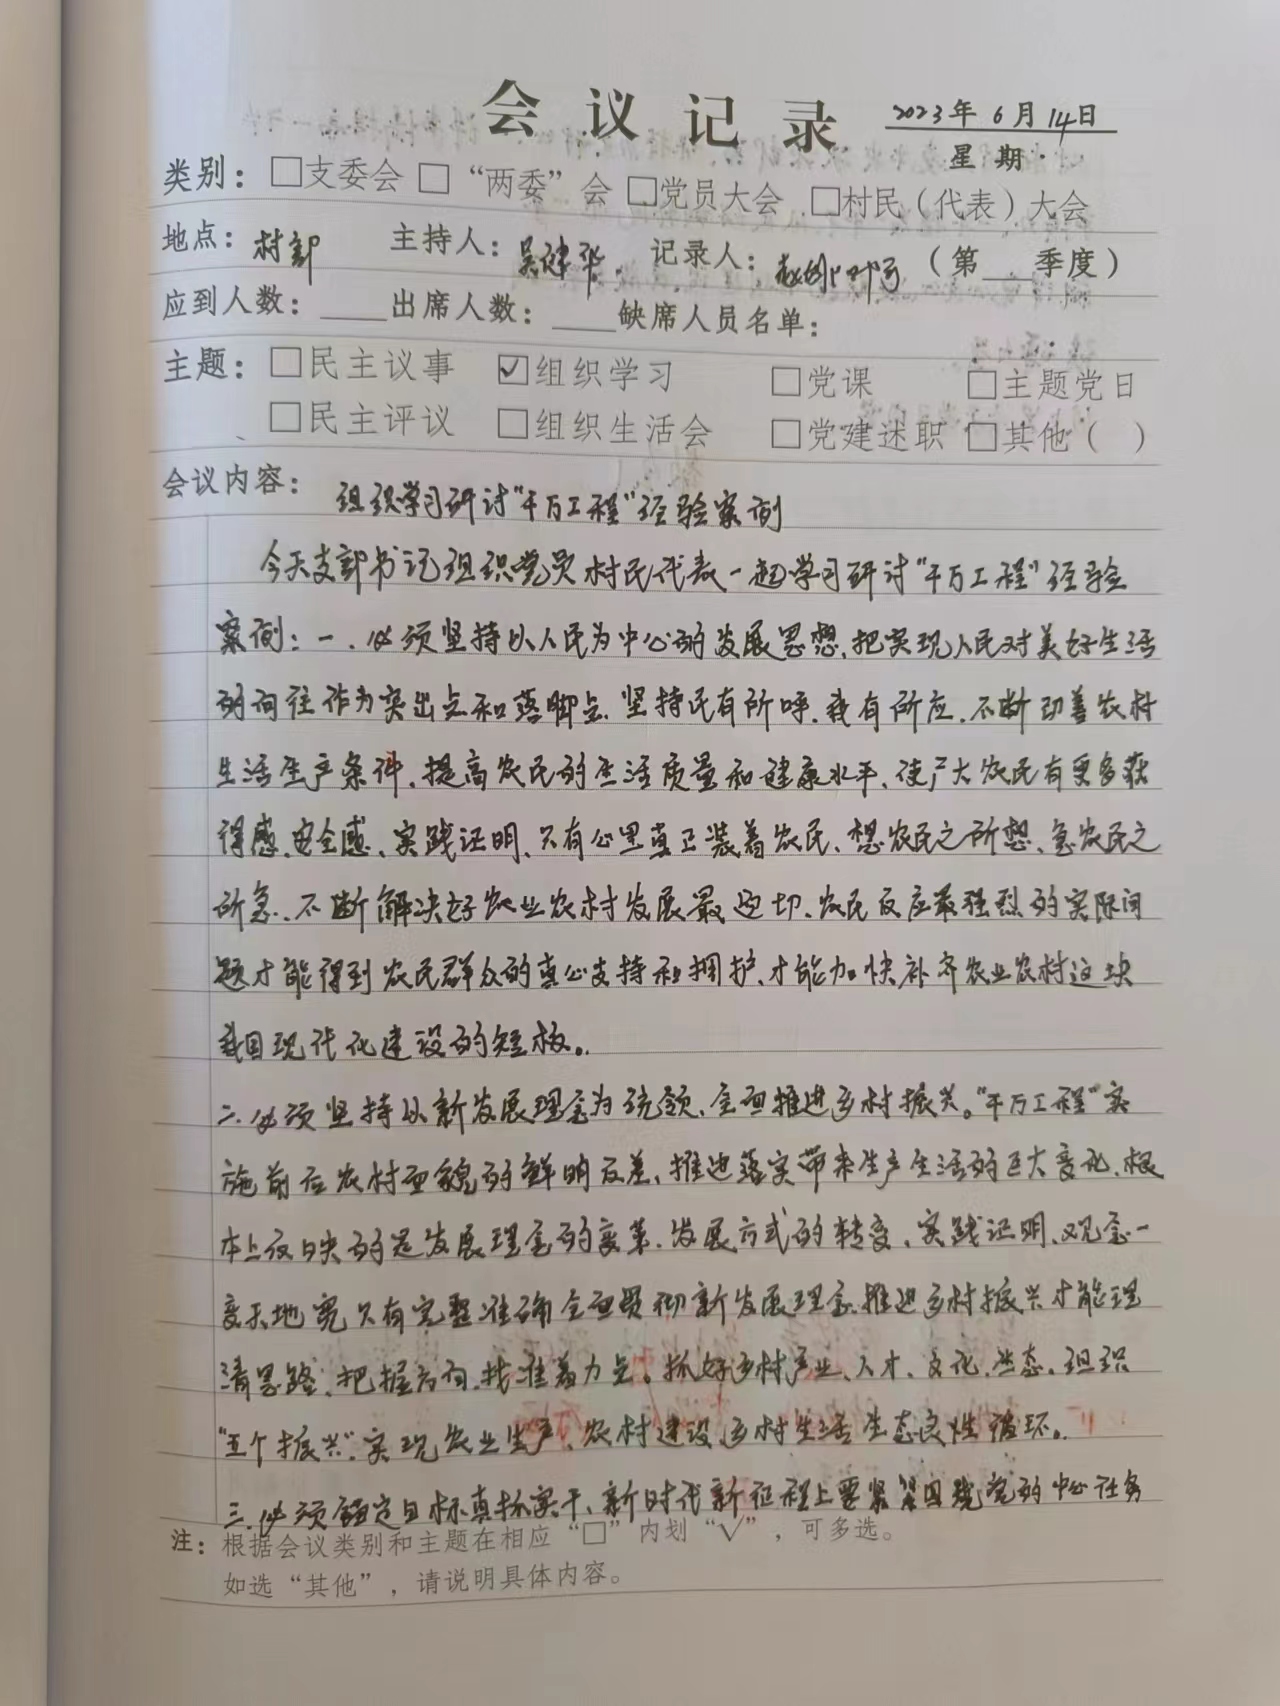 会议记录 2023年6月14日
星期
类别：□支委会 □“两委”会 □党员大会 □村民（代表）大会
地点：村部 主持人：吴建华 记录人： （第 季度）
应到人数： 出席人数： 缺席人员名单：
主题：□民主议事 ☑组织学习 □党课 □主题党日
□民主评议 □组织生活会 □党建述职 □其他（ ）
会议内容：组织学习研讨“千万工程”经验案例
今天支部书记组织党员村民代表一起学习研讨“千万工程”经验
案例：一、必须坚持以人民为中心的发展思想，把实现人民对美好生活
的向往作为突出点和落脚点，坚持民有所呼，我有所应，不断改善农村
生活生产条件，提高农民的生活质量和健康水平，使广大农民有更多获
得感、安全感、实践证明，只有心里真正装着农民，想农民之所想、急农民之
所急，不断解决好农业农村发展最迫切、农民反应最强烈的实际问
题才能得到农民群众的真心支持和拥护，才能加快补齐农业农村这块
我国现代化建设的短板。
二、必须坚持以新发展理念为统领，全面推进乡村振兴。“千万工程”实
施前后农村面貌的鲜明反差，推进落实带来生产生活的巨大变化，根
本上反映的是发展理念的变革，发展方式的转变，实践证明，观念一
变天地宽只有完整准确全面贯彻新发展理念推进乡村振兴才能理
清思路，把握方向，找准着力点。抓好乡村产业、人才、文化、生态、组织
“五个振兴”实现农业生产、农村建设乡村生活生态良性循环。
三、必须锚定目标真抓实干，新时代新征程上要紧紧围绕党的中心任务
注：根据会议类别和主题在相应“□”内划“√”，可多选。
如选“其他”，请说明具体内容。